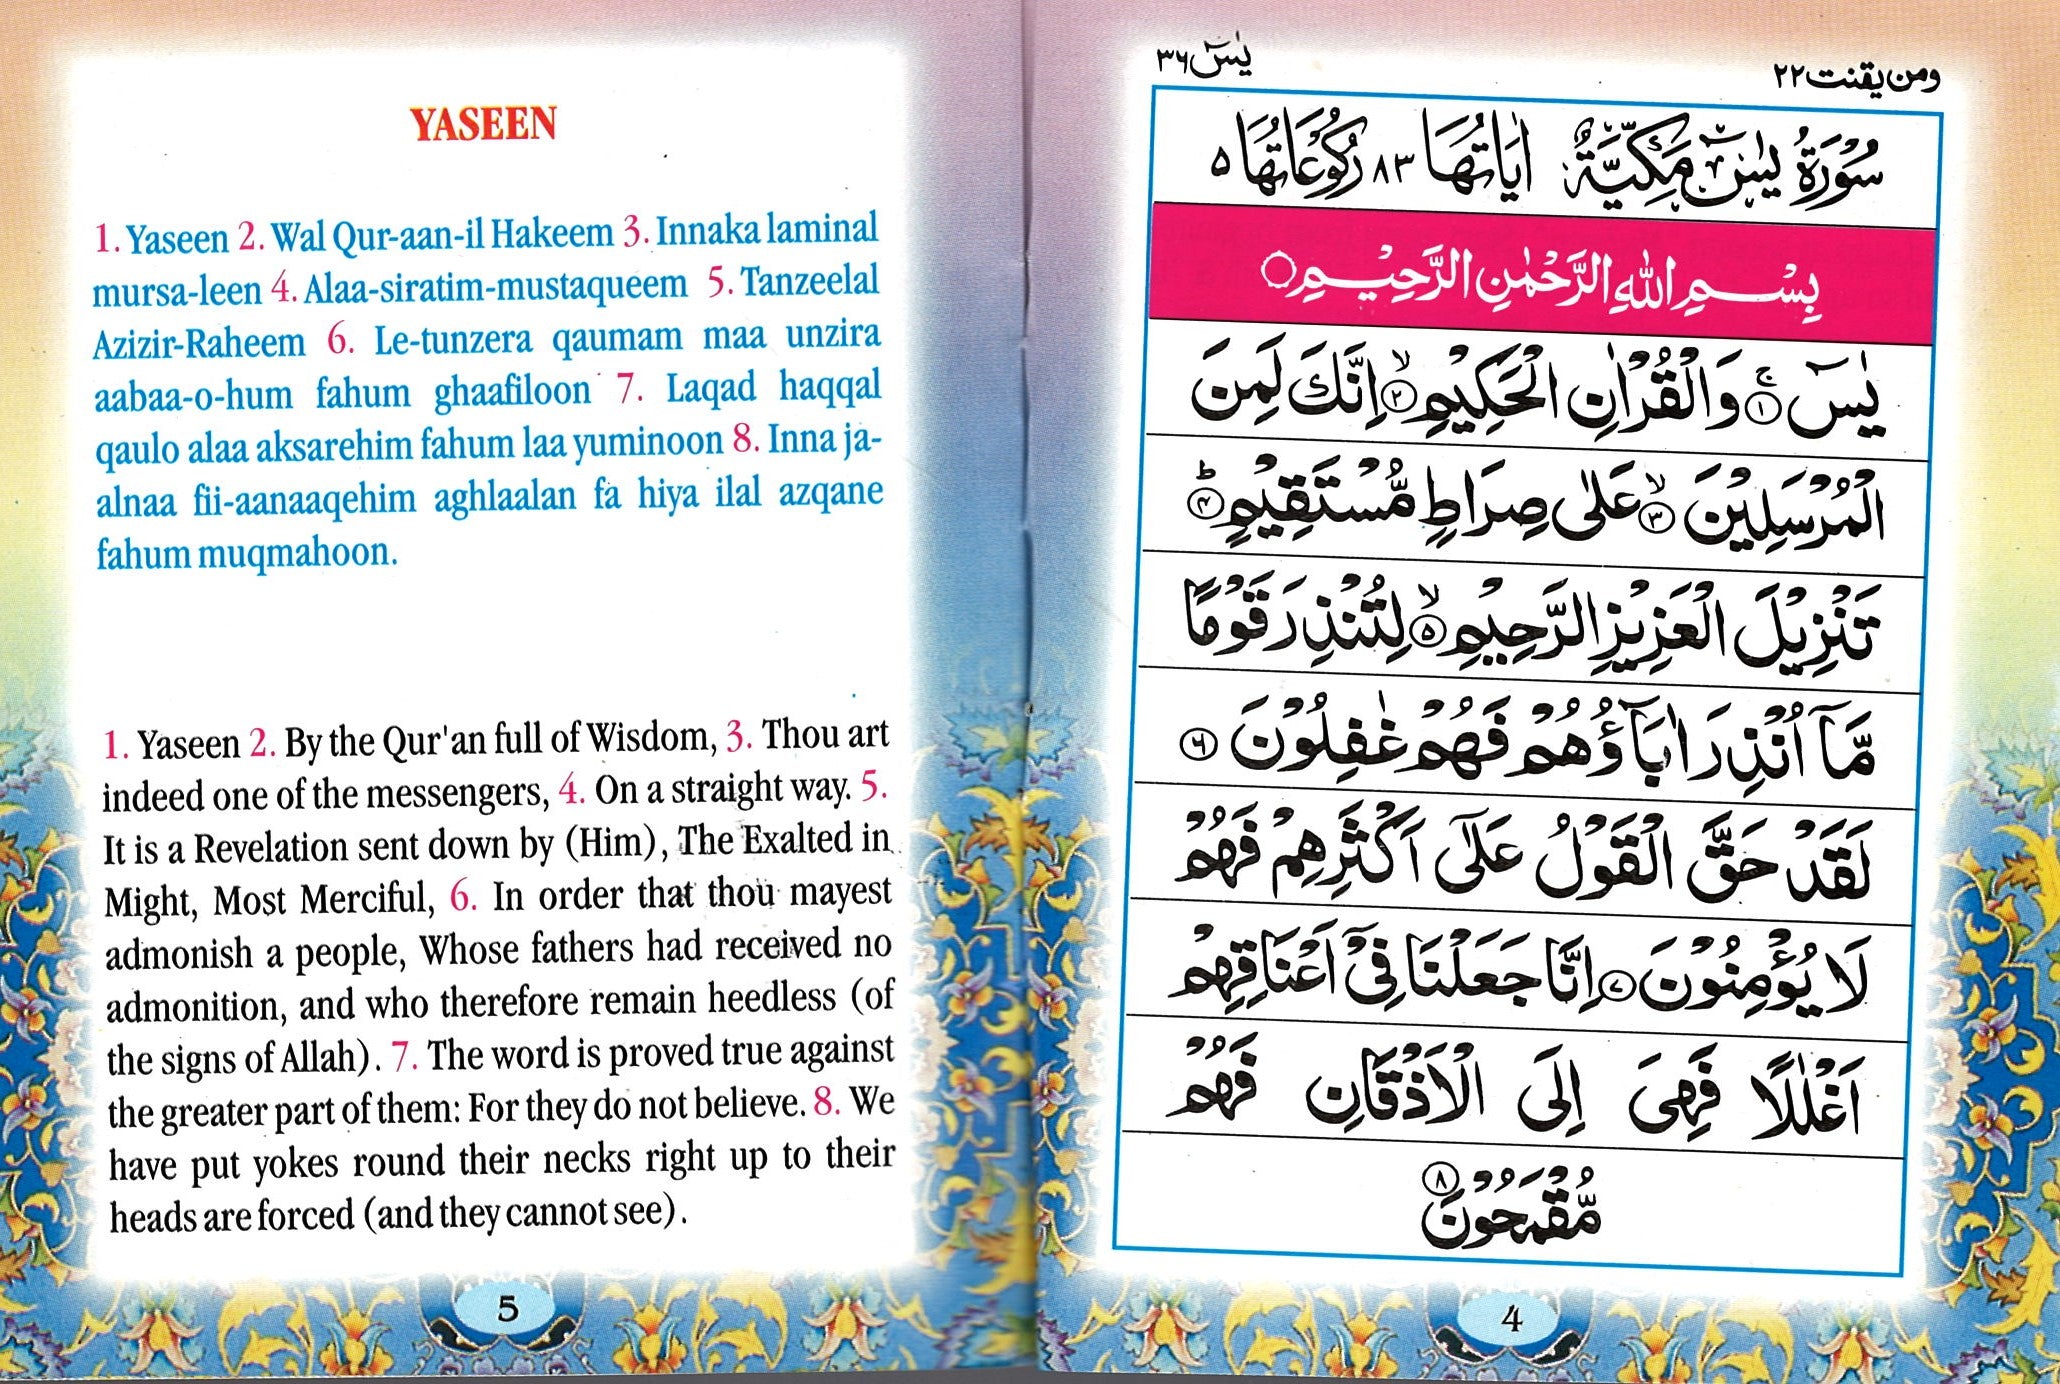 YASEEN
1. Yaseen 2. Wal Qur-aan-il Hakeem 3. Innaka laminal
mursa-leen 4. Alaa-siratim-mustaqueem 5. Tanzeelal
Azizir-Raheem 6. Le-tunzera qaumam maa unzira
aabaa-o-hum fahum ghaafiloon 7. Laqad haqqal
qaulo alaa aksarehim fahum laa yuminoon 8. Inna ja-
alnaa fii-aanaaqehim aghlaalan fa hiya ilal azqane
fahum muqmahoon.
1. Yaseen 2. By the Qur'an full of Wisdom, 3. Thou art
indeed one of the messengers, 4. On a straight way. 5.
It is a Revelation sent down by (Him), The Exalted in
Might, Most Merciful, 6. In order that thou mayest
admonish a people, Whose fathers had received no
admonition, and who therefore remain heedless (of
the signs of Allah). 7. The word is proved true against
the greater part of them: For they do not believe. 8. We
have put yokes round their necks right up to their
heads are forced (and they cannot see).
5
ومن یقنت ۲۲ یٰسٓ ۳۶
سُوْرَةُ يٰسٓ مَكِّيَّةٌ اٰيَاتُهَا ۸۳ رُكُوْعَاتُهَا ۵
بِسْمِ اللهِ الرَّحْمٰنِ الرَّحِيْمِ○
يٰسٓ ۚ﴿۱﴾ وَالْقُرْاٰنِ الْحَكِيْمِ ۙ﴿۲﴾ اِنَّكَ لَمِنَ
الْمُرْسَلِيْنَ ۙ﴿۳﴾ عَلٰى صِرَاطٍ مُّسْتَقِيْمٍ ؕ﴿۴﴾
تَنْزِيْلَ الْعَزِيْزِ الرَّحِيْمِ ۙ﴿۵﴾ لِتُنْذِرَ قَوْمًا
مَّآ اُنْذِرَ اٰبَآؤُهُمْ فَهُمْ غٰفِلُوْنَ ﴿۶﴾
لَقَدْ حَقَّ الْقَوْلُ عَلٰٓى اَكْثَرِهِمْ فَهُمْ
لَا يُؤْمِنُوْنَ ﴿۷﴾ اِنَّا جَعَلْنَا فِيْٓ اَعْنَاقِهِمْ
اَغْلٰلًا فَهِىَ اِلَى الْاَذْقَانِ فَهُمْ
مُّقْمَحُوْنَ ﴿۸﴾
4